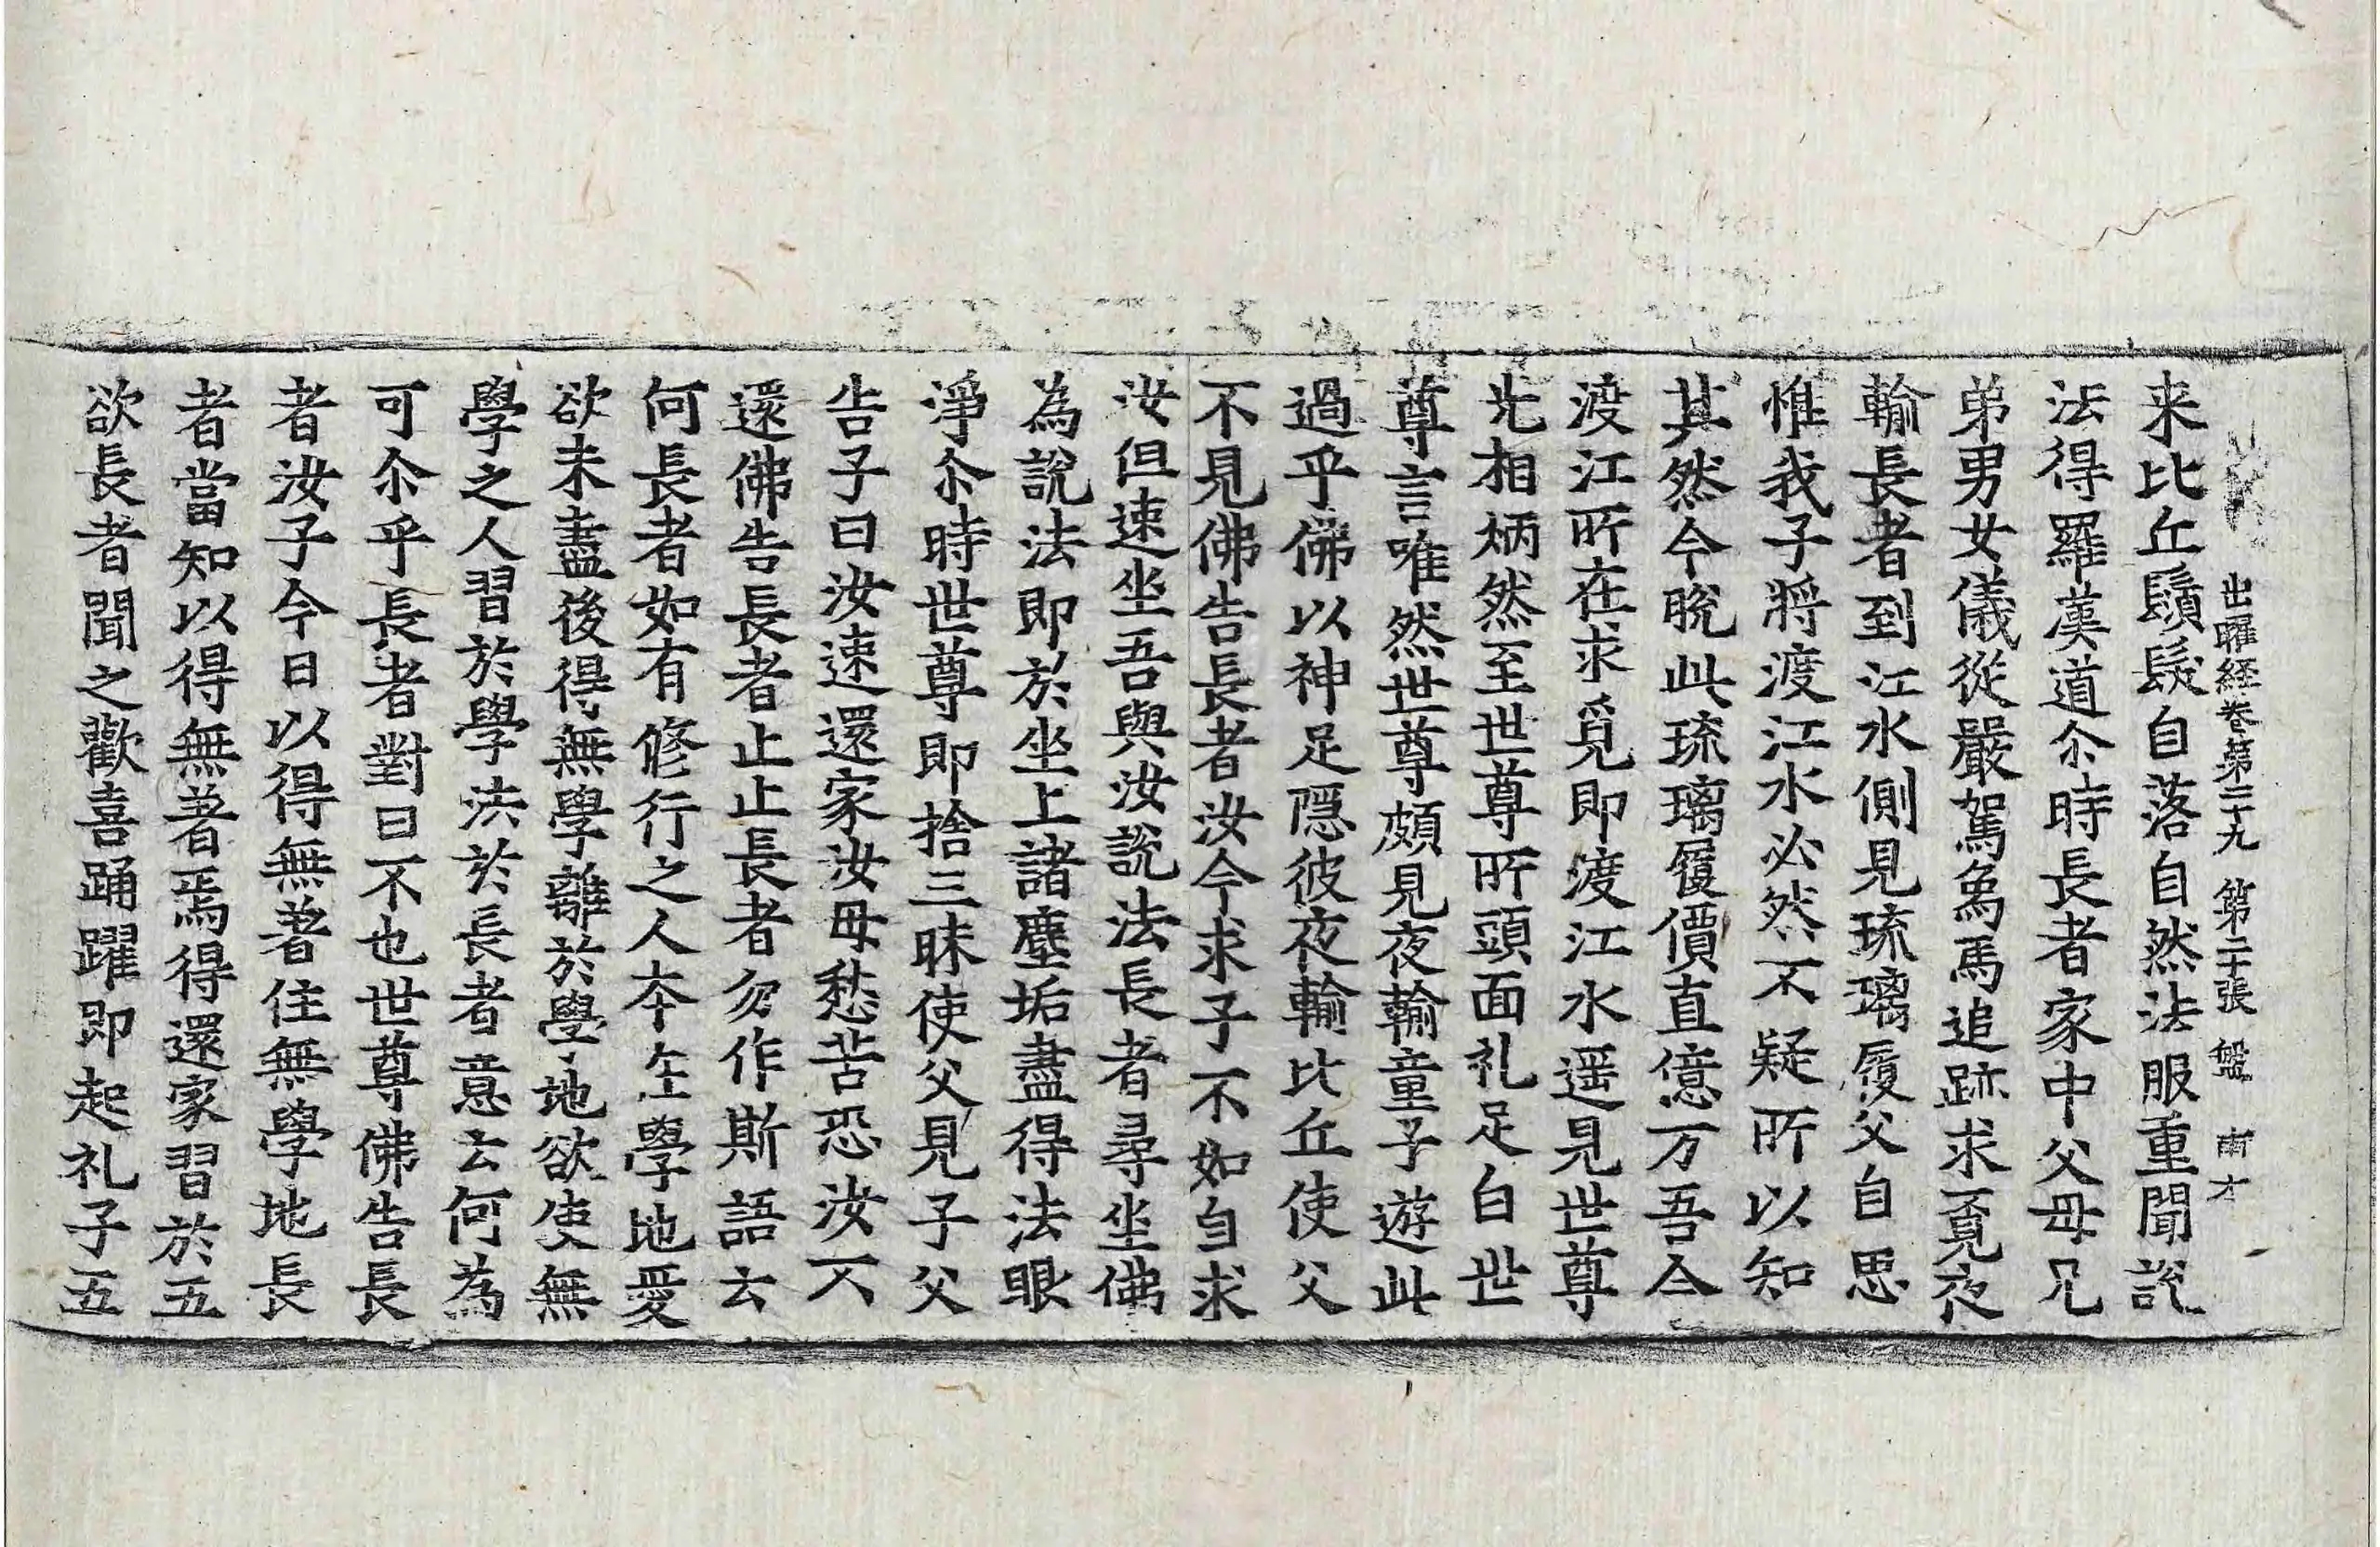 出曜経卷第二十九 第二十張 盤 南才
来比丘鬚髮自落自然法服重聞說
法得羅漢道尒時長者家中父母兄
弟男女儀從嚴駕象馬追跡求覓夜
輸長者到江水側見琉璃履父自思
惟我子將渡江水必然不疑所以知
其然今晥此琉璃履價直億万吾今
渡江所在求覓即渡江水遥見世尊
光相炳然至世尊所頭面礼足白世
尊言唯然世尊頗見夜輸童子遊此
過乎佛以神足隱彼夜輸比丘使父
不見佛告長者汝今求子不如自求
汝但速坐吾與汝說法長者尋坐佛
為說法即於坐上諸塵垢盡得法眼
淨尒時世尊即捨三昧使父見子父
告子曰汝速還家汝母愁苦恐汝不
還佛告長者止止長者勿作斯語云
何長者如有修行之人本在學地愛
欲未盡後得無學離於學地欲使無
學之人習於學法於長者意云何為
可尒乎長者對曰不也世尊佛告長
者汝子今日以得無著住無學地長
者當知以得無著焉得還家習於五
欲長者聞之歡喜踊躍即起礼子五